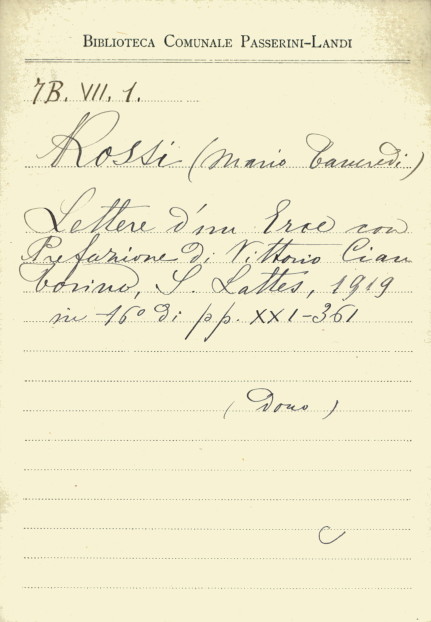 BIBLIOTECA COMUNALE PASSERINI-LANDI
7B. VII. 1.
Rossi (Mario Tancredi)
Lettere d'un Eroe con
Prefazione di Vittorio Cian
Torino, S. Lattes, 1919
in 16° di pp. XXI-361
(Dono)
C